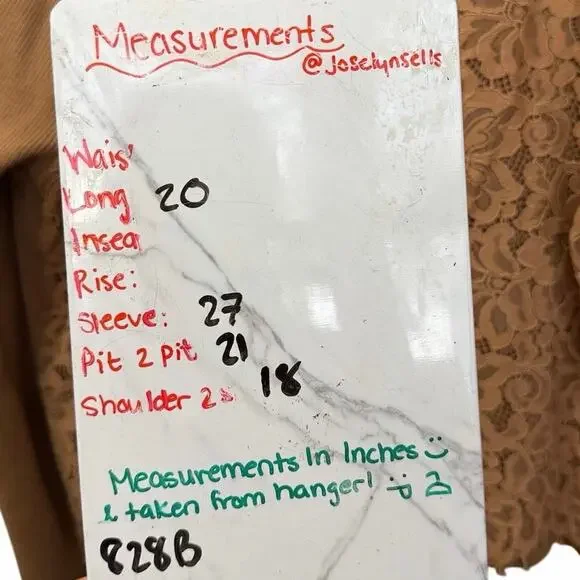 Measurements
@joselynsells
Wais
Long 20
Insea
Rise:
Sleeve: 27
Pit 2 Pit 21
Shoulder 2s 18
Measurements In Inches :)
& taken from hanger!
828B